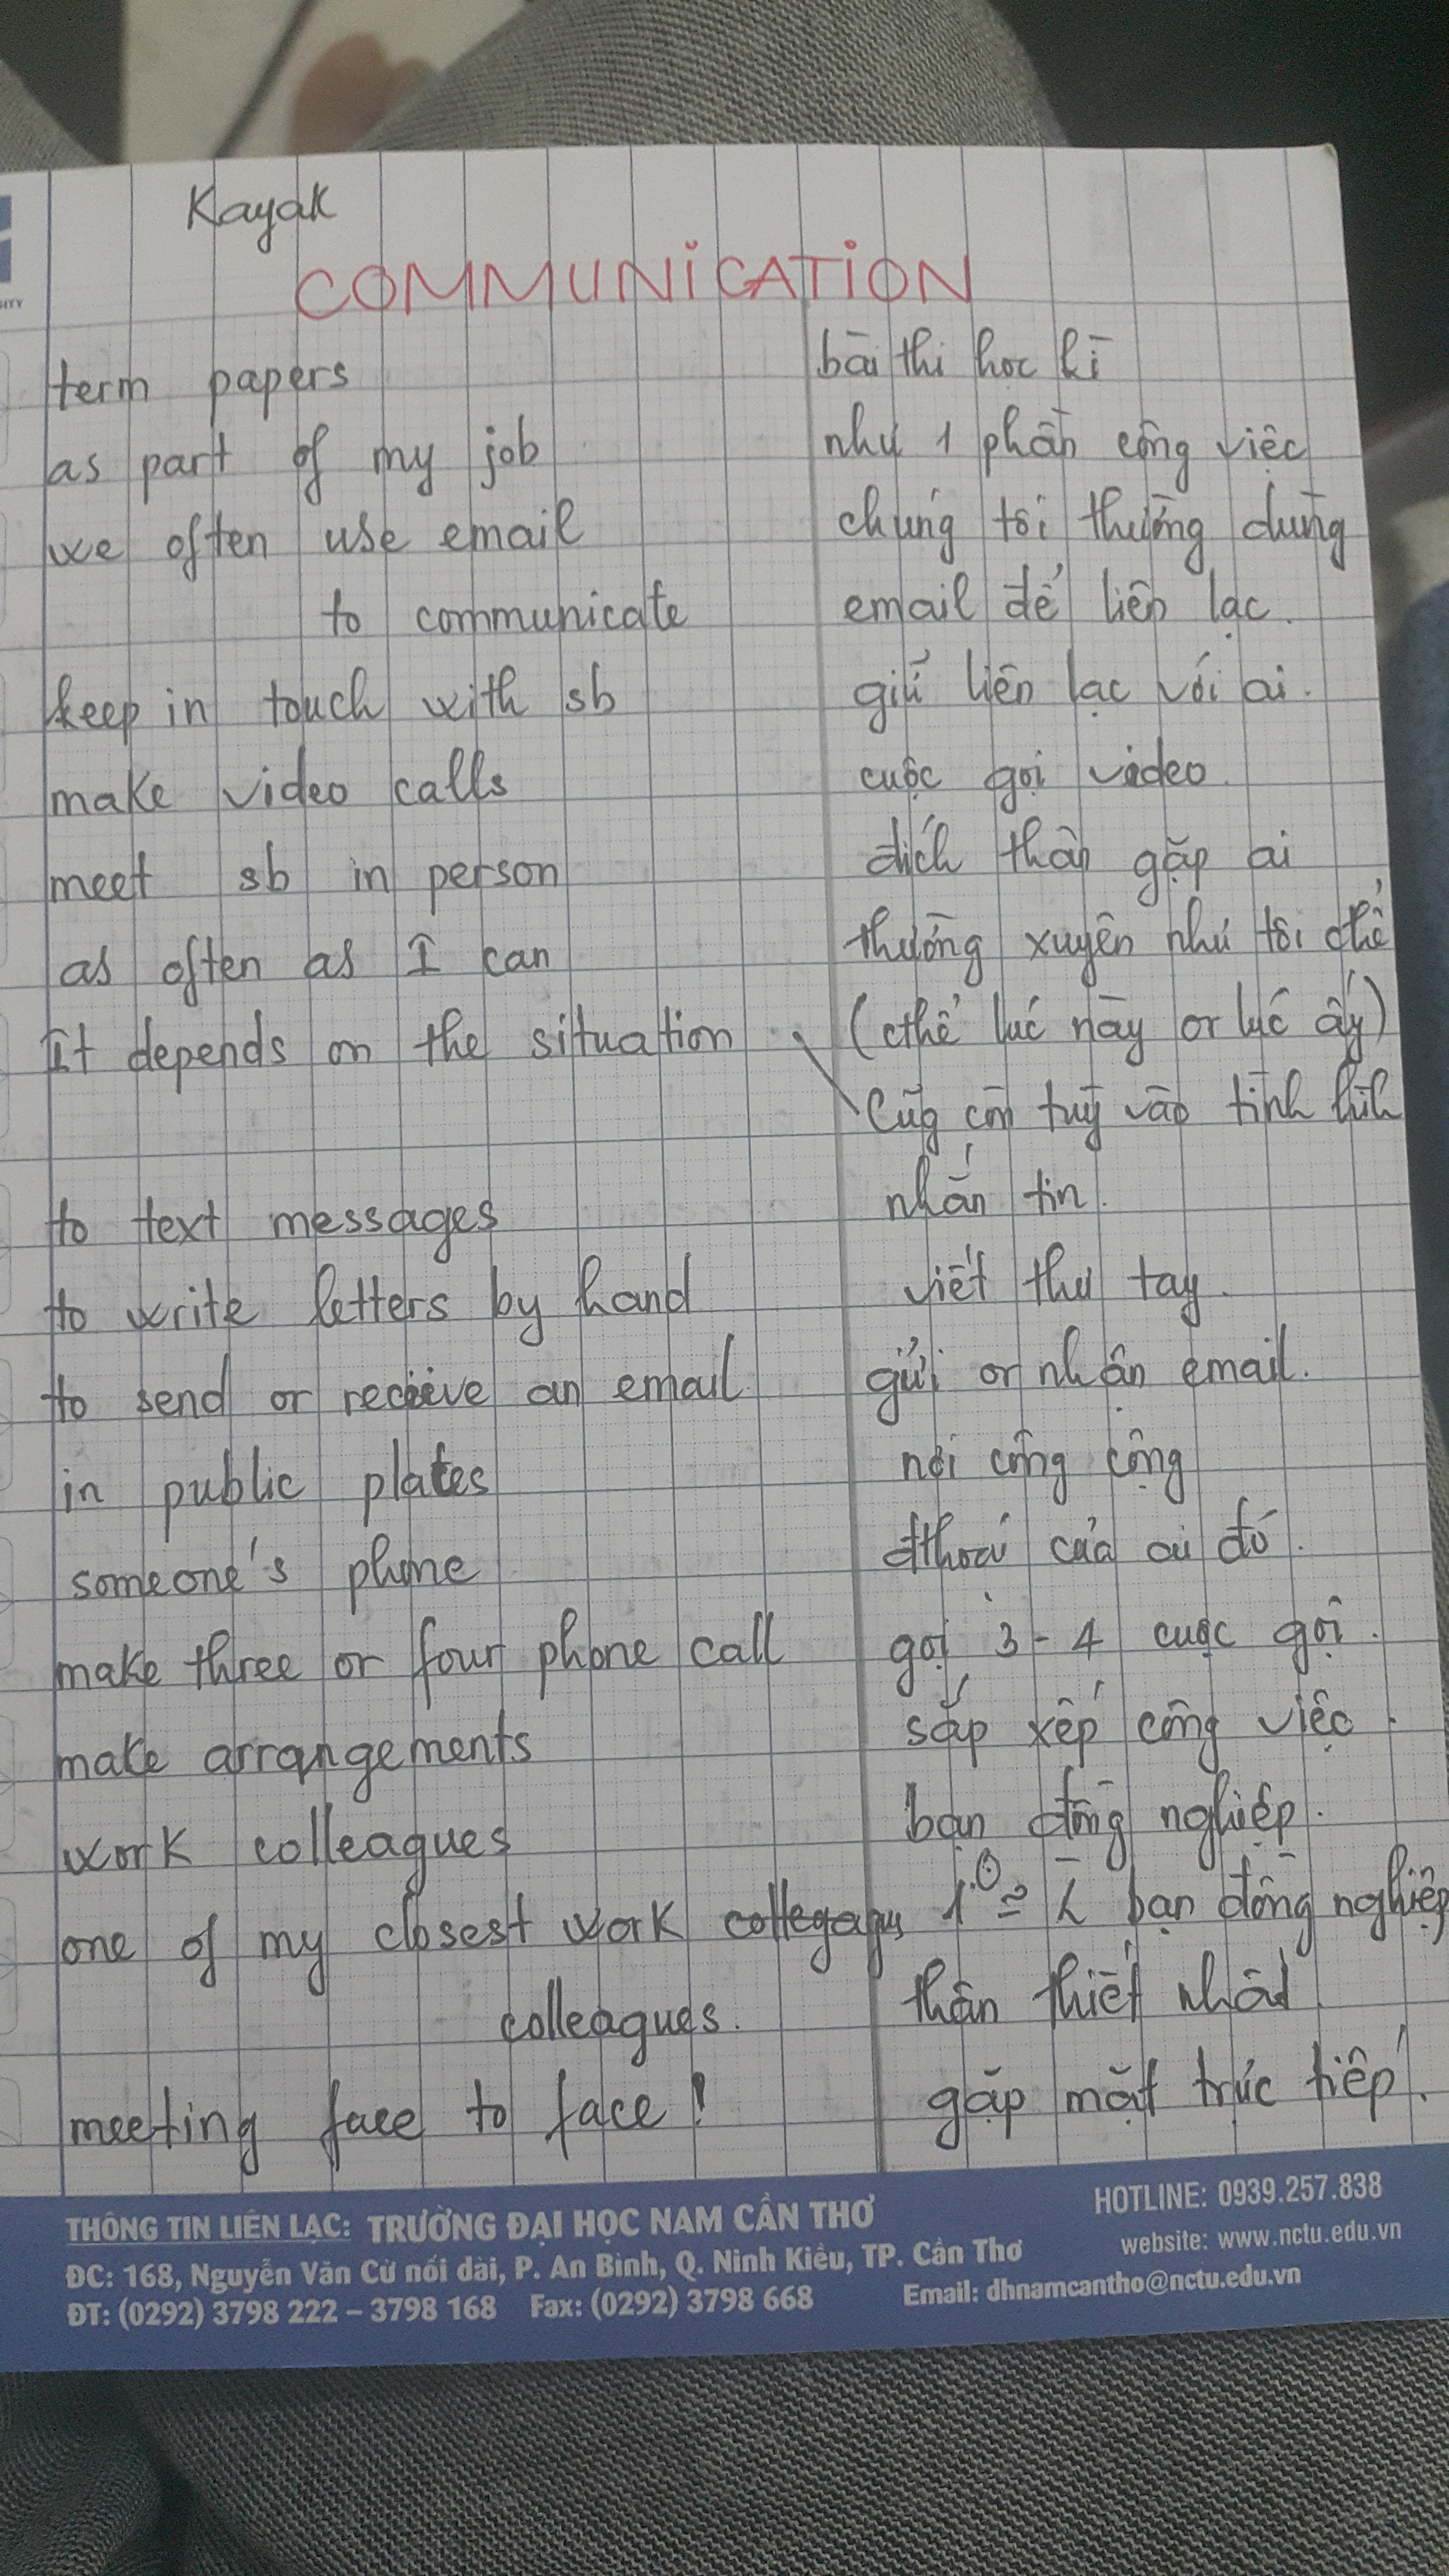 Kayak
COMMUNICATION
term papers bài thi học kì
as part of my job như 1 phần công việc
we often use email chúng tôi thường dùng
to communicate email để liên lạc.
keep in touch with sb giữ liên lạc với ai.
make video calls cuộc gọi video.
meet sb in person đích thân gặp ai
as often as I can thường xuyên như tôi thể
It depends on the situation. (cthể lúc này or lúc ấy)
Cũg còn tuỳ vào tình hình
to text messages nhắn tin.
to write letters by hand viết thư tay.
to send or receive an email. gửi or nhận email.
in public places nơi công cộng
someone's phone đthoại của ai đó.
make three or four phone call gọi 3-4 cuộc gọi.
make arrangements sắp xếp công việc.
work colleagues bạn đồng nghiệp.
one of my closest work bạn đồng nghiệp
colleagues. thân thiết nhất
meeting face to face! gặp mặt trực tiếp.
THÔNG TIN LIÊN LẠC: TRƯỜNG ĐẠI HỌC NAM CẦN THƠ HOTLINE: 0939.257.838
ĐC: 168, Nguyễn Văn Cừ nối dài, P. An Bình, Q. Ninh Kiều, TP. Cần Thơ website: www.nctu.edu.vn
ĐT: (0292) 3798 222 – 3798 168 Fax: (0292) 3798 668 Email: dhnamcantho@nctu.edu.vn